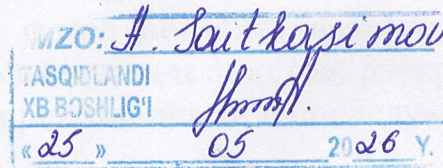 IMZO: A. Saitkasimov
TASQIDLANDI
XB BOSHLIG'I
« 25 » 05 2026 Y.